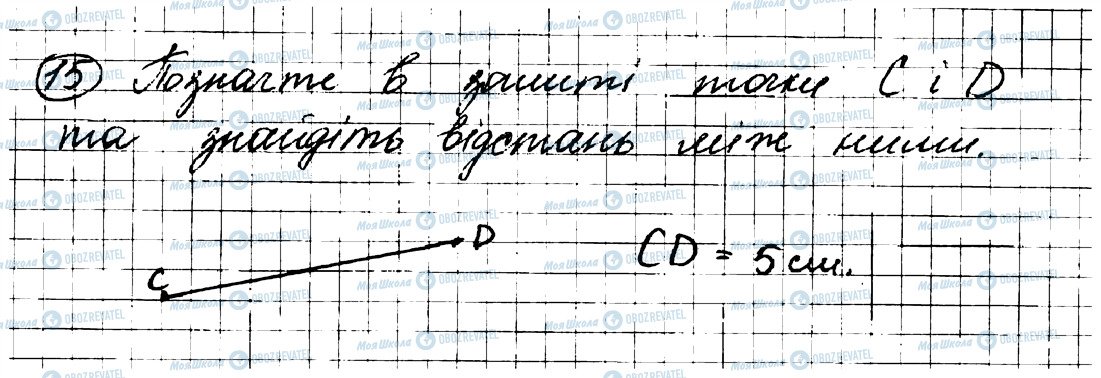 15 Позначте в зошиті точки C і D
та знайдіть відстань між ними.
C
D
CD = 5 см.